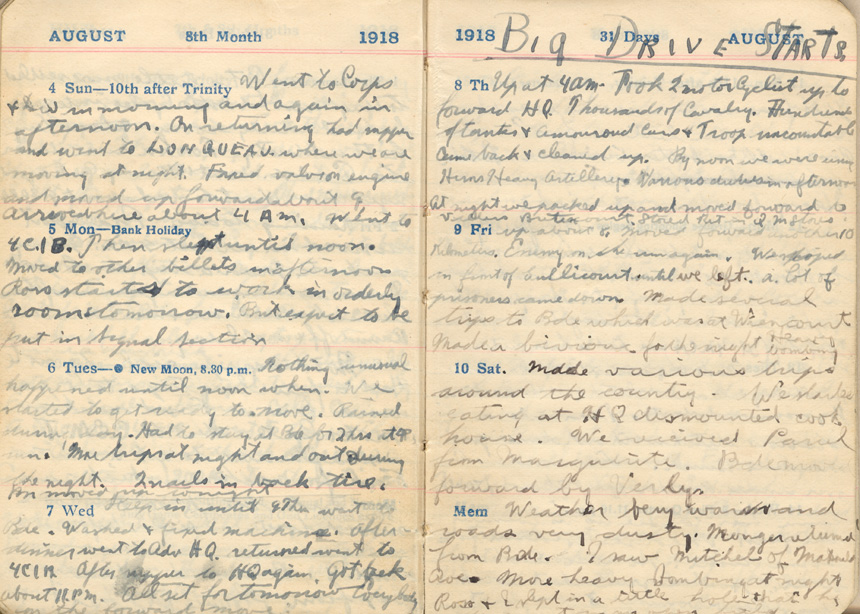 AUGUST 8th Month 1918
4 Sun—10th after Trinity Went to Corps
in morning and again in
afternoon. On returning had supper
and went to LONGUEAU where we are
moving at night. Fixed valve on engine
and moved up forward about 9
Arrived here about 4 AM. Went to
5 Mon—Bank Holiday
4C.I.B. Then slept until noon.
Moved to other billets in afternoon
Ross starts to work in orderly
room tomorrow. But expect to be
put in signal section
6 Tues—● New Moon, 8.30 p.m. Nothing unusual
happened until noon when. We
started to get ready to move. Rained
during day. Had to stay at Bde for 2 hrs at
trips at night and out during
the night. 2 nails in back tire.
moved up tonight
7 Wed Sleep in until 9 then went to
Bde. Washed & fixed machine. After
dinner went to Adv HQ. returned went to
4CIB After supper to HQ again. Got back
about 11 P.M. All set for tomorrow Everybody
on the forward move.
1918 31 Days AUGUST
BIG DRIVE STARTS
8 Th Up at 4am. Took 2 motor cyclist up to
forward HQ. Thousands of Cavalry. Hundreds
of tanks & armoured cars & Troop uncountable
Came back & cleaned up. By noon we were using
Huns Heavy Artillery. Various duties in afternoon
At night we packed up and moved forward to
9 Fri up about 6 moved forward another 10
kilometres. Enemy on the run again. We stopped
in front of until we left. a lot of
prisoners came down. Made several
trips to Bde which was at Wiencourt
Made a bivouac for the night
bombing
10 Sat. Made various trips
around the country. We started
eating at HQ dismounted cook
house. We received Parcel
from Marguerite. Bde moved
forward by Vrely.
Mem Weather very warm and
roads very dusty. Munger returned
from Bde. I saw Mitchel of
Ave. More heavy bombing at night
Ross & I slept in a little hole that he